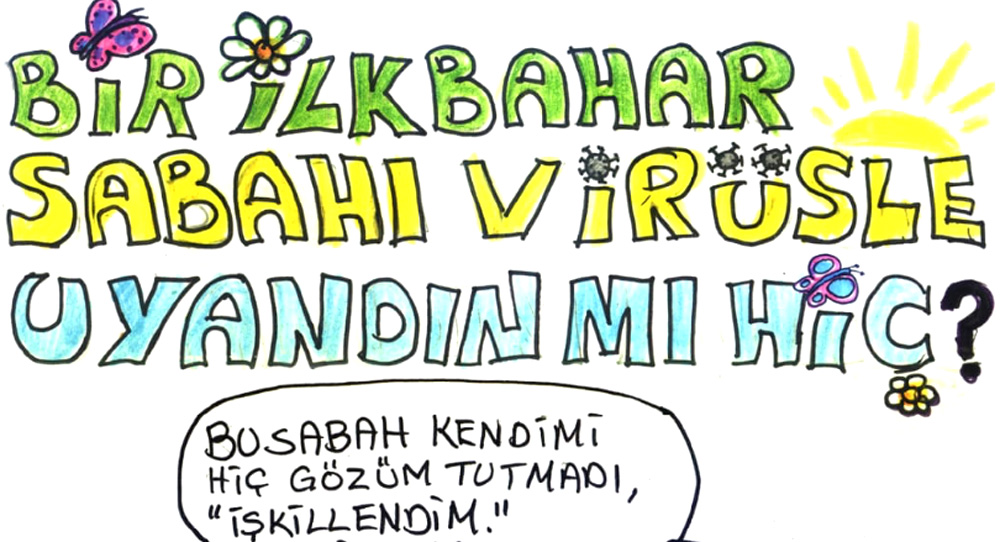 BİR İLKBAHAR
SABAHI VİRÜSLE
UYANDIN MI HİÇ?
BU SABAH KENDİMİ
HİÇ GÖZÜM TUTMADI,
"İŞKİLLENDİM."